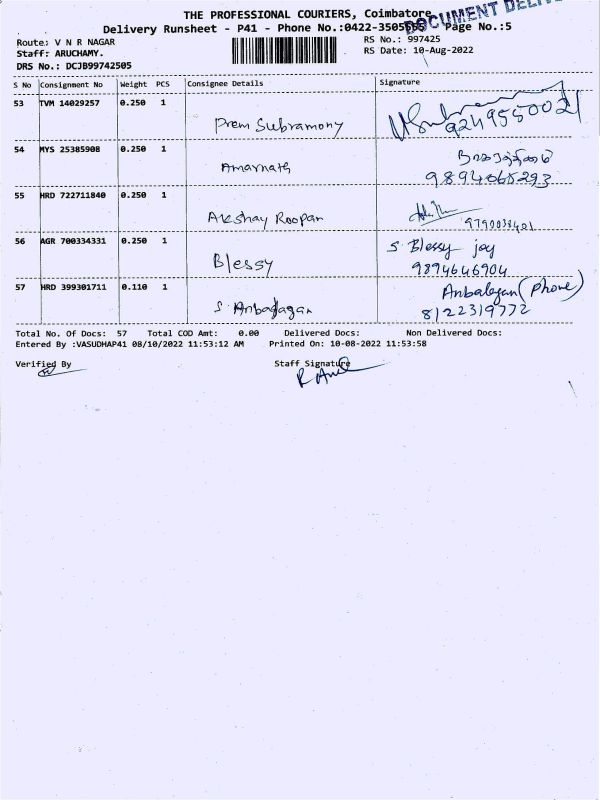 THE PROFESSIONAL COURIERS, Coimbatore
DOCUMENT
Delivery Runsheet - P41 - Phone No.:0422-3505 Page No.:5
Route: V N R NAGAR
RS No.: 997425
Staff: ARUCHAMY.
RS Date: 10-Aug-2022
DRS No.: DCJB99742505
S No Consignment No Weight PCS Consignee Details Signature
53 TVM 14029257 0.250 1
Prem Subramony
9249550021
54 MYS 25385908 0.250 1
Amarnath
9894068293
55 HRD 722711840 0.250 1
Akshay Roopan
56 AGR 700334331 0.250 1
S Blessy joy
Blessy
9894646904
57 HRD 399301711 0.110 1
Anbalagan (Phone)
S. Anbalagan
8122319772
Total No. Of Docs: 57 Total COD Amt: 0.00 Delivered Docs: Non Delivered Docs:
Entered By :VASUDHAP41 08/10/2022 11:53:12 AM Printed On: 10-08-2022 11:53:58
Verified By
Staff Signature